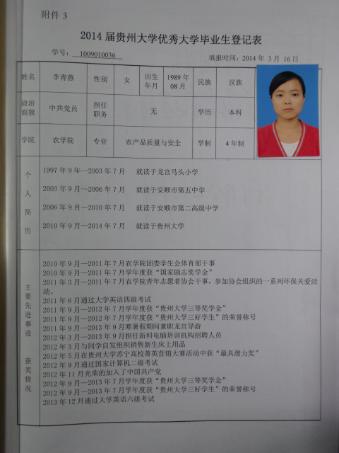 附件 3
2014 届贵州大学优秀大学毕业生登记表
学号: 1009010036 填报时间: 2014 年 3 月 16 日
姓名 李青燕 性别 女 出生年月 1989年08月 民族 汉族
政治面貌 中共党员 担任职务 无 学历 本科
学院 农学院 专业 农产品质量与安全 学制 4 年制
个人简历
1997 年 9 月—2003 年 7 月 就读于龙宫马头小学
2003 年 9 月—2006 年 7 月 就读于安顺市第五中学
2006 年 9 月—2010 年 7 月 就读于安顺市第二高级中学
2010 年 9 月—2014 年 7 月 就读于贵州大学
主要先进事迹 获奖情况
2010 年 9 月—2011 年 7 月农学院团委学生会体育部干事
2010 年 9 月—2011 年 7 月学年度获“国家励志奖学金”
2010 年 9 月—2011 年 7 月农学院青年志愿者协会干事，参加协会组织的一系列环保关爱活动。
2011 年 6 月通过大学英语四级考试
2011 年 9 月—2012 年 7 月学年度获“贵州大学三等奖学金”
2011 年 9 月—2012 年 7 月学年度获“贵州大学三好学生”的荣誉称号
2011 年 9 月—2013 年 9 月寒暑假期间兼职龙宫导游
2012 年 3 月—2013 年 2 月担任新科电脑培训机构招聘人员
2012 年 3 月与同学自发组织销售新生床上用品
2012 年 5 月在贵州大学苏宁高校菁英营销大赛活动中获“最具潜力奖”
2012 年 9 月通过国家计算机二级考试
2012 年 11 月光荣的加入了中国共产党
2012 年 9 月—2013 年 7 月学年度获“贵州大学三等奖学金”
2012 年 9 月—2013 年 7 月学年度获“贵州大学三好学生”的荣誉称号
2013 年 12 月通过大学英语六级考试